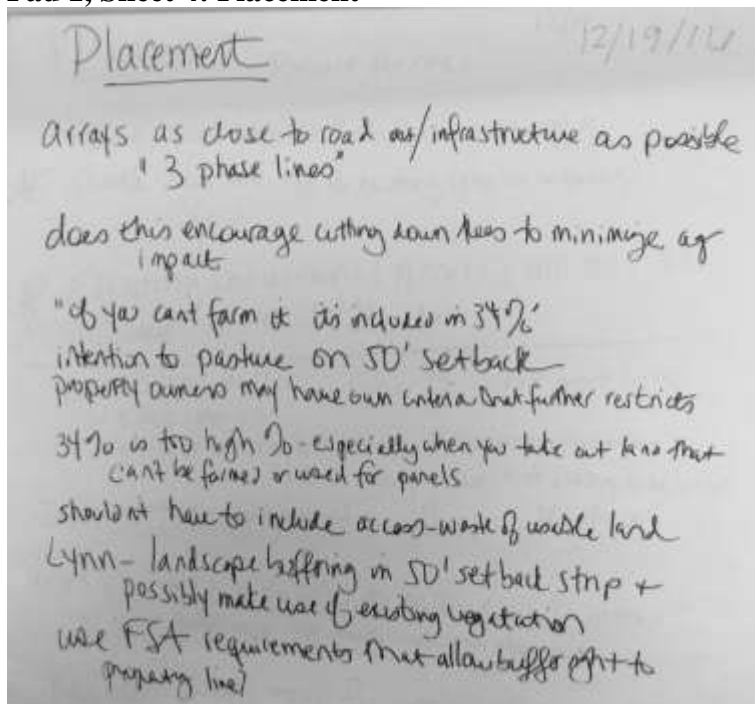 Pad 2, Sheet 4: Placement
Placement
12/19/
arrays as close to road infrastructure as possible
"3 phase lines"
does this encourage cutting down trees to minimize ag
impact
"if you cant farm it its included in 34%"
intention to pasture on 50' setback
property owners may have own criteria that further restricts
34% is too high %-especially when you take out land that
can't be farmed or used for panels
shouldnt have to include access-waste of usable land
Lynn- landscape buffering in 50' setback strip +
possibly make use of existing vegetation
use FSA requirements that allow buffer right to
property line?